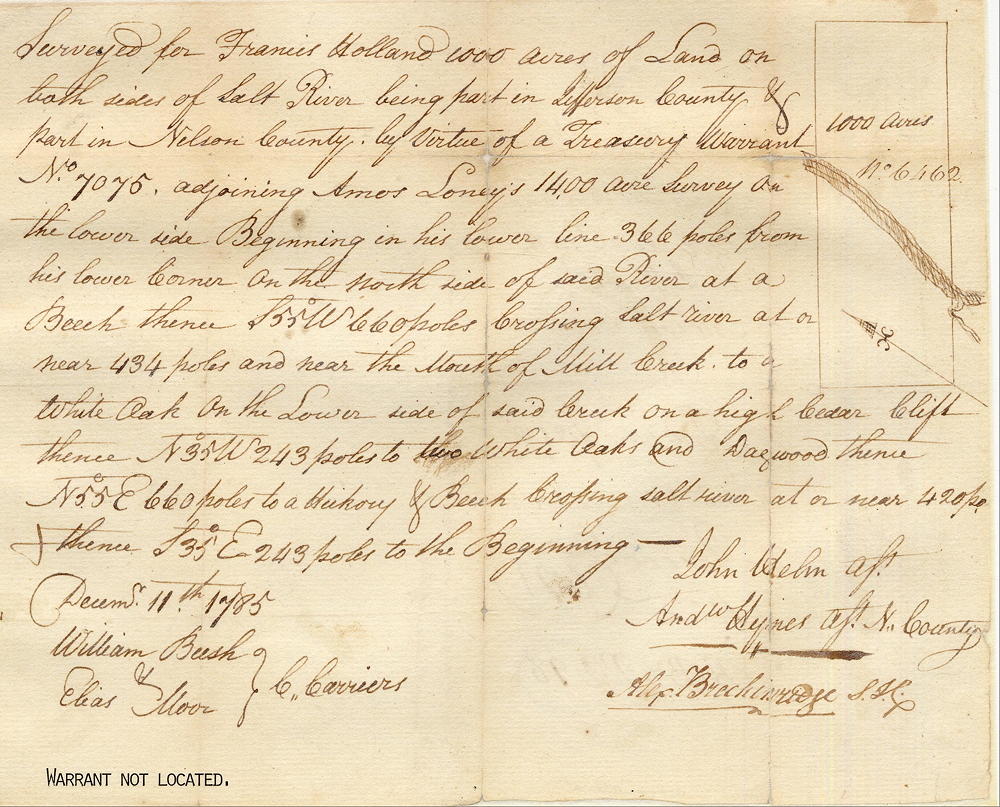 Surveyed for Francis Holland 1000 acres of Land on
both sides of Salt River being part in Jefferson County &
part in Nelson County. by Virtue of a Treasury Warrant
No. 7075. adjoining Amos Loney's 1400 acre Survey on
the lower side Beginning in his lower line 366 poles from
his lower Corner on the north side of said River at a
Beech thence S55°W 660 poles Crossing Salt river at or
near 434 poles and near the Mouth of Mill Creek. to a
White Oak on the Lower side of said Creek on a high Cedar Clift
thence N35°W 243 poles to two White Oaks and Dagwood thence
N55°E 660 poles to a Hickory & Beech Crossing salt river at or near 420 po.
thence S35°E 243 poles to the Beginning —
Decemr. 11th 1785
William Beesh
&
Elias Moor
C,, Carriers
John Helm asst.
Andw Hynes asst. N. County
Alex. Breckinredge S.J.C.
1000 acres
No. 6462.
WARRANT NOT LOCATED.